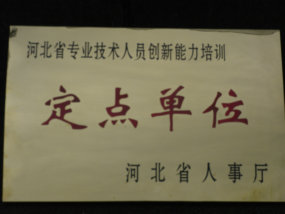 河北省专业技术人员创新能力培训
定点单位
河北省人事厅